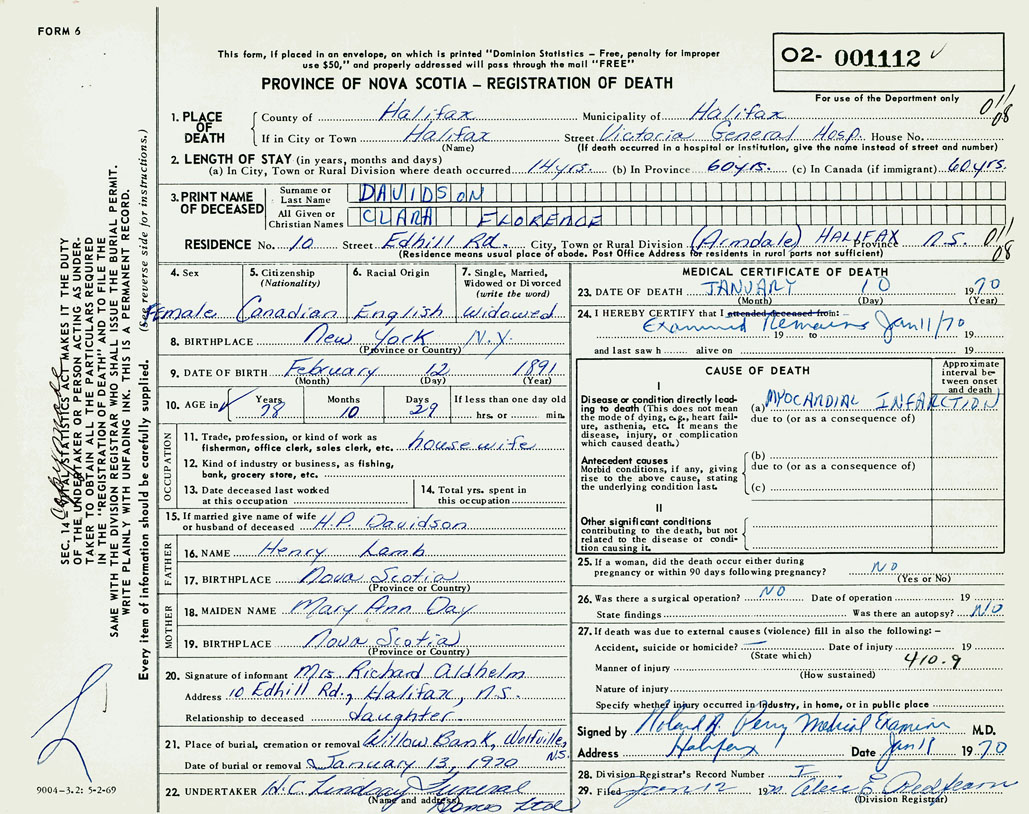 FORM 6
This form, if placed in an envelope, on which is printed "Dominion Statistics – Free, penalty for improper
use $50," and properly addressed will pass through the mail "FREE"
PROVINCE OF NOVA SCOTIA – REGISTRATION OF DEATH
O2- 001112
For use of the Department only
011
08
1. PLACE OF DEATH County of Halifax Municipality of Halifax
If in City or Town Halifax Street Victoria General Hosp. House No.
(Name) (If death occurred in a hospital or institution, give the name instead of street and number)
2. LENGTH OF STAY (in years, months and days)
(a) In City, Town or Rural Division where death occurred 14yrs. (b) In Province 60yrs. (c) In Canada (if immigrant) 60yrs.
3. PRINT NAME OF DECEASED Surname or Last Name DAVIDSON
All Given or Christian Names CLARA FLORENCE
RESIDENCE No. 10 Street Edhill Rd. City, Town or Rural Division (Armdale) HALIFAX Province N.S. 011
(Residence means usual place of abode. Post Office Address for residents in rural parts not sufficient) 08
4. Sex 5. Citizenship (Nationality) 6. Racial Origin 7. Single, Married, Widowed or Divorced (write the word)
Female Canadian English Widowed
8. BIRTHPLACE New York N.Y.
(Province or Country)
9. DATE OF BIRTH February 12 1891
(Month) (Day) (Year)
10. AGE in Years Months Days If less than one day old
78 10 29 hrs. or min.
OCCUPATION
11. Trade, profession, or kind of work as
fisherman, office clerk, sales clerk, etc. housewife
12. Kind of industry or business, as fishing,
bank, grocery store, etc.
13. Date deceased last worked at this occupation 14. Total yrs. spent in this occupation
15. If married give name of wife
or husband of deceased H.P. Davidson
FATHER
16. NAME Henry Lamb
17. BIRTHPLACE Nova Scotia
(Province or Country)
MOTHER
18. MAIDEN NAME Mary Ann Day
19. BIRTHPLACE Nova Scotia
(Province or Country)
20. Signature of informant Mrs. Richard Aldhelm
Address 10 Edhill Rd., Halifax, N.S.
Relationship to deceased daughter.
21. Place of burial, cremation or removal Willow Bank, Wolfville, N.S.
Date of burial or removal January 13, 1970
22. UNDERTAKER H.C. Lindsay Funeral
(Name and address) Homes Ltd
MEDICAL CERTIFICATE OF DEATH
23. DATE OF DEATH JANUARY 10 1970
(Month) (Day) (Year)
24. I HEREBY CERTIFY that I attended deceased from:
Examined Remains Jan 11/70
19 to 19
and last saw h alive on 19
CAUSE OF DEATH
Approximate interval between onset and death
I
Disease or condition directly leading
to death (This does not (a) MYOCARDIAL INFARCTION
mean the mode of dying, e.g., heart failure, due to (or as a consequence of)
asthenia, etc. It means the
disease, injury, or complication
which caused death.)
Antecedent causes (b)
Morbid conditions, if any, giving due to (or as a consequence of)
rise to the above cause, stating
the underlying condition last. (c)
II
Other significant conditions
contributing to the death, but not
related to the disease or condition
causing it.
25. If a woman, did the death occur either during
pregnancy or within 90 days following pregnancy? NO
(Yes or No)
26. Was there a surgical operation? NO Date of operation 19
State findings Was there an autopsy? NO
27. If death was due to external causes (violence) fill in also the following: –
Accident, suicide or homicide? — Date of injury 19
(State which) 410.9
Manner of injury
(How sustained)
Nature of injury
Specify whether injury occurred in Industry, in home, or in public place
Signed by Roland A. Perry Medical Examiner M.D.
Address Halifax Date Jan 11 1970
28. Division Registrar's Record Number
29. Filed Jan 12 1970
(Division Registrar)
SEC. 14 VITAL STATISTICS ACT MAKES IT THE DUTY
OF THE UNDERTAKER OR PERSON ACTING AS UNDERTAKER
TO OBTAIN ALL THE PARTICULARS REQUIRED
IN THE "REGISTRATION OF DEATH" AND TO FILE THE
SAME WITH THE DIVISION REGISTRAR WHO SHALL ISSUE THE BURIAL PERMIT.
WRITE PLAINLY WITH UNFADING INK. THIS IS A PERMANENT RECORD.
Every item of information should be carefully supplied. (See reverse side for instructions.)
9004-3.2: 5-2-69